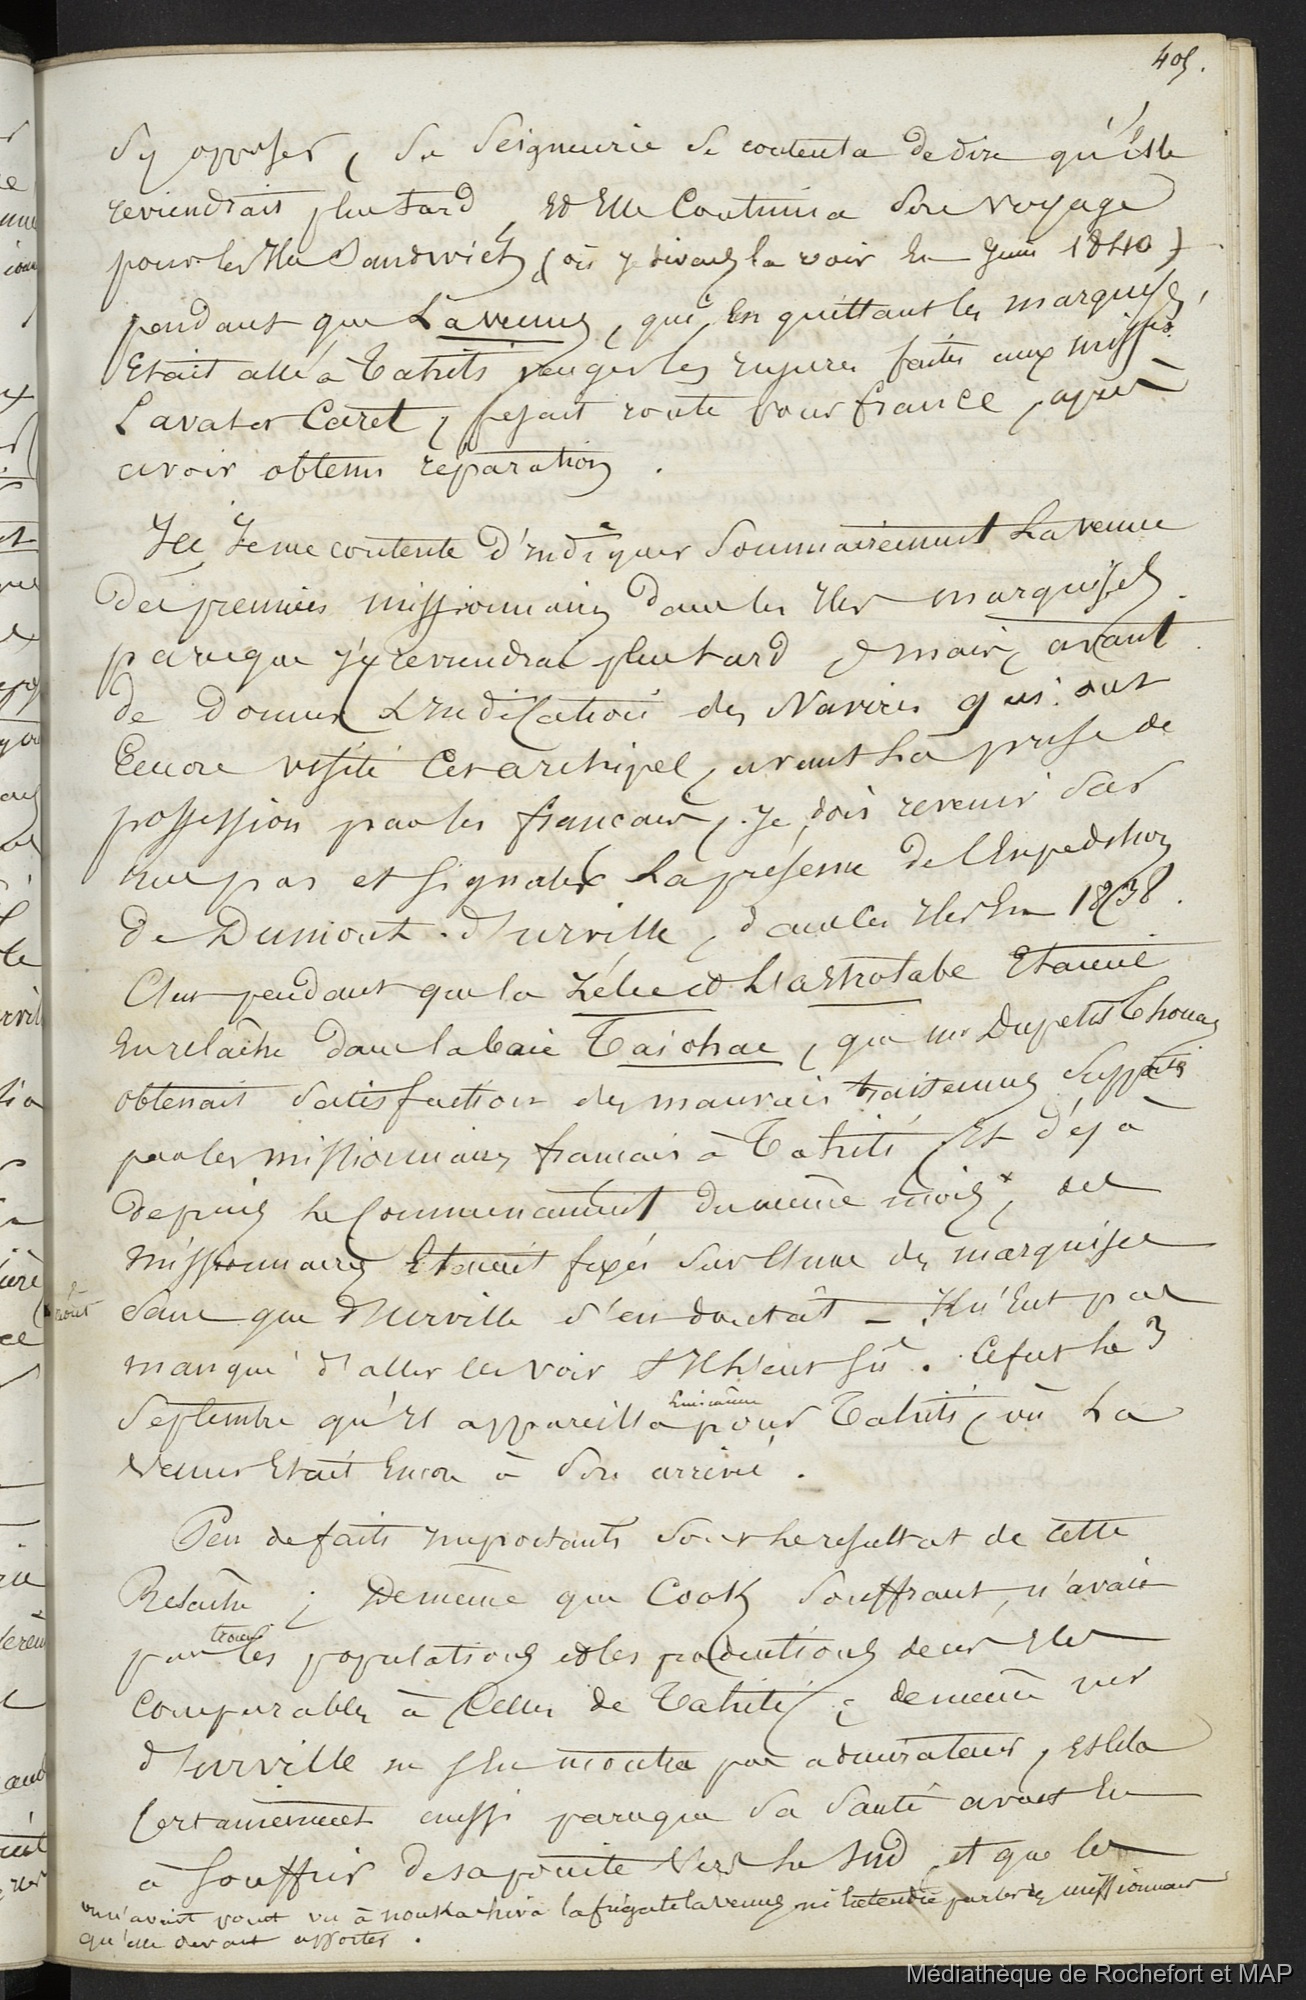 405.
S'y opposer, Sa Seigneurie se contenta de dire qu'Elle
reviendrait plus tard, Et Elle Continua Son voyage
pour les Iles Sandwich (où je devais la voir En Juin 1840)
pendant que La venus, qui, En quittant les marquises,
Etait allé à Tahiti venger les injures faites aux missres
Lavat et Caret, fesait route pour france, après
avoir obtenu réparation.
Ici Je me contente d'indiquer Sommairement La venue
Des premiers missionnaires dans les Iles marquises.
parceque j'y reviendrai plus tard, mais, avant
de donner L'indication des Navires qui ont
Encore visité Cet archipel, avant La prise de
possession par les français, je dois revenir Sur
mes pas et Signaler La présence de l'Expedition
de Dumont-d'urville, dans les Iles En 1838.
C'est pendant que la Zélée et L'astrolabe Etaient
En relâche dans la baie Taiohae, que mr Dupetit Thouars
obtenait Satisfaction des mauvais traitemens Supportés
par les missionnaires français à Tahiti, Et déjà
depuis Le Commencement du même mois*, des
missionnaires Etaient fixés Sur L'une des marquises
Sans que d'urville s'en doutât – Il n'Eut pas
* août
manqué d'aller les voir S'Il L'eut Sû. Ce fut Le 3
Septembre qu'Il appareilla pour Tahiti, où La
Venus Etait Encore à Son arrivée.
Peu de faits importants Sont Le resultat de cette
Relâche; De même que Cook Souffrant, n'avait
pas trouvé les populations et les productions de ces Iles
Comparables à Celles de Tahiti; de même mr
d'urville ne S'en montra pas admirateur, Et cela
Certainement aussi parceque Sa Santé avait Eu
à Souffrir de sa pointe vers Le Sud, et que les
on n'avait point vu à noukahiva la frégate la venus, ni Entendu parler des missionnaires
qu'elle devait apporter.
Médiathèque de Rochefort et MAP